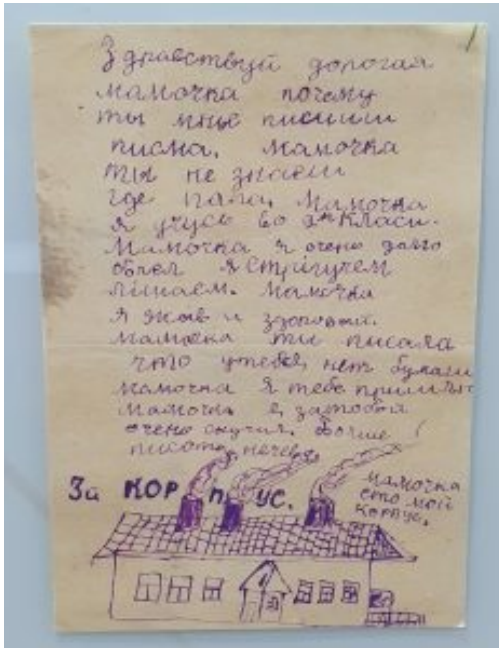 Здравствуй дорогая
мамочка почему
ты мнье писиши
писма. Мамочка
ты не знаеш
где папа. Мамочка
я учусь во 2м класи.
Мамочка я очено долго
болел Я стрігучем
лішаем. Мамочка
я жыв и здоровый.
мамочка ты писала
что утебя нет бумаги
мамочка я тебе пришлю
мамочка я затобой
очено скучил. Болше
писать нечево
За КОР П УС.
мамочка
ето мой
корпус.